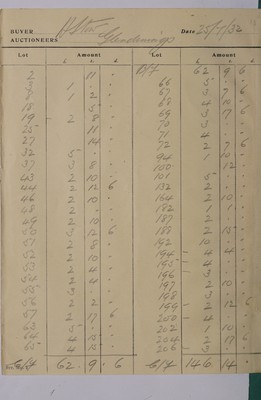 BUYER
AUCTIONEERS Glendinings
Date 25/7/32
Lot Amount Lot Amount
£ s. d. £ s. d.
2 11 - B/f 62 9 6
66 5 -
1 2 - 67 3 7 6
18 5 - 68 4 10 -
19 2 8 - 69 3 17 6
25 11 - 70 3 -
27 14 - 71 4 -
32 5 - 72 2 7 6
37 3 8 - 94 1 10 -
43 2 10 - 101 5 -
44 2 12 6 132 2 -
46 2 10 - 164 2 10 -
48 2 - 182 1 1 -
49 2 10 - 187 2 -
50 3 12 6 188 2 15 -
51 2 8 - 192 10 -
52 2 10 - 194 4 4 -
53 2 4 - 195 4 -
54 2 4 - 196 3 -
55 3 - 197 2 10 -
56 2 2 - 198 3 -
57 2 17 6 199 2 12 6
63 5 - 200 4 -
64 4 15 - 202 1 10 -
65 4 15 - 204 2 17 6
206 3 -
C/f 62 . 9 . 6 C/f 146 14 -